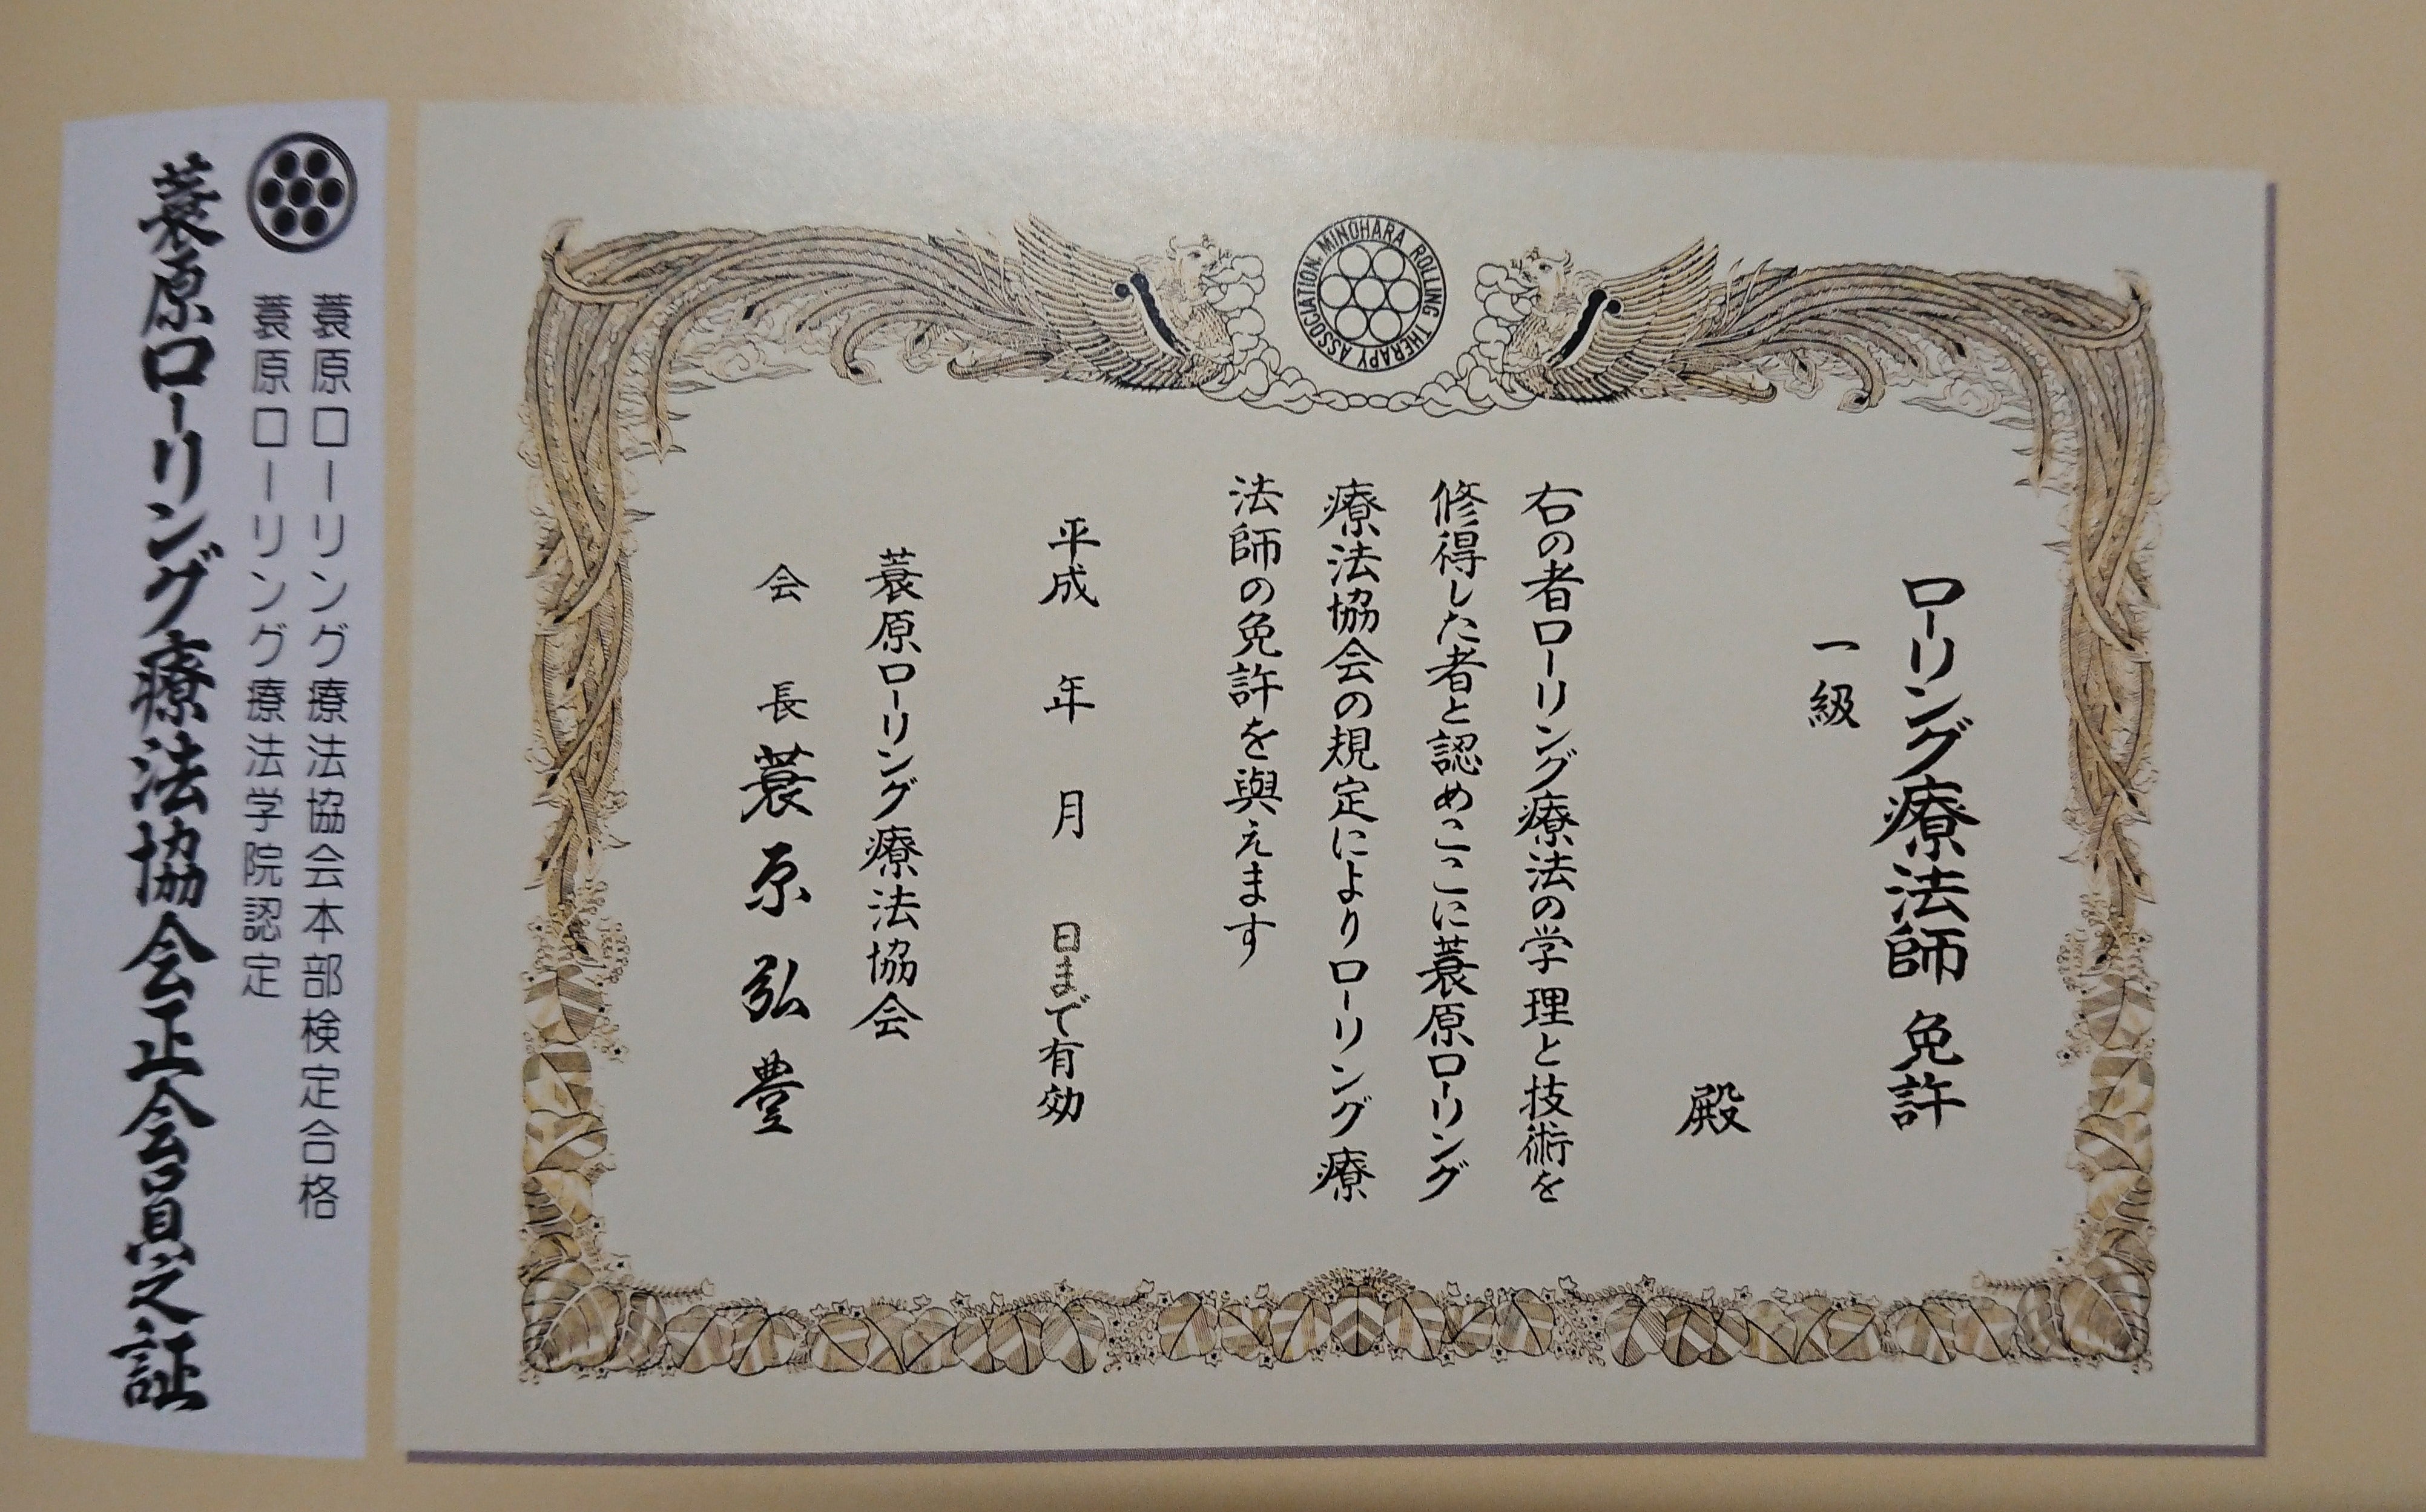 MINOHARA ROLLING THERAPY ASSOCIATION.
ローリング療法師 免許
一級
殿
右の者ローリング療法の学理と技術を
修得した者と認めここに蓑原ローリング
療法協会の規定によりローリング療
法師の免許を與えます
平成 年 月 日まで有効
蓑原ローリング療法協会
会 長 蓑原弘豊
蓑原ローリング療法協会本部検定合格
蓑原ローリング療法学院認定
蓑原ローリング療法協会正会員之証